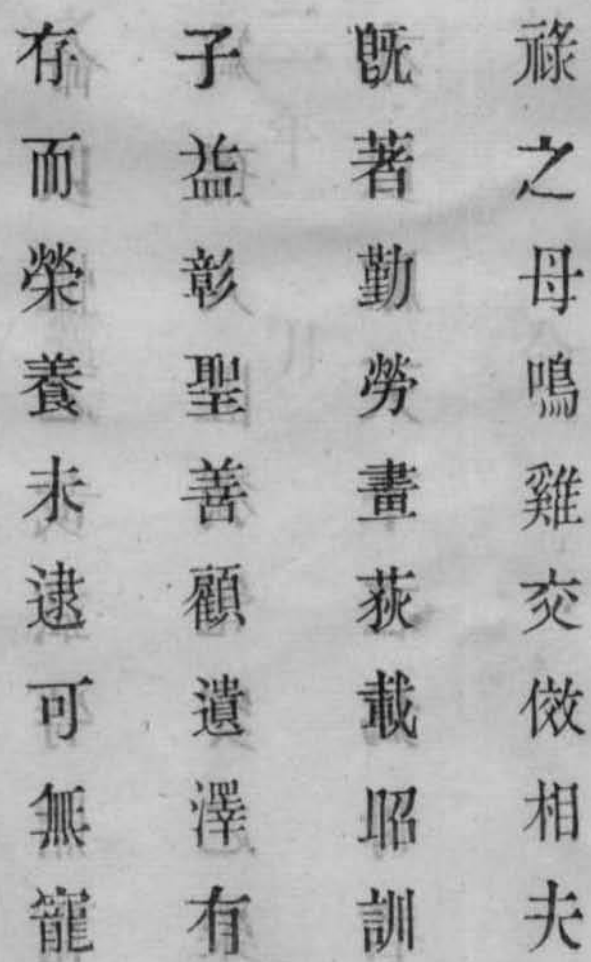 祿之母鳴雞交儆相夫
旣著勤勞畫荻載昭訓
子益彰聖善顧遺澤有
存而榮養未逮可無寵